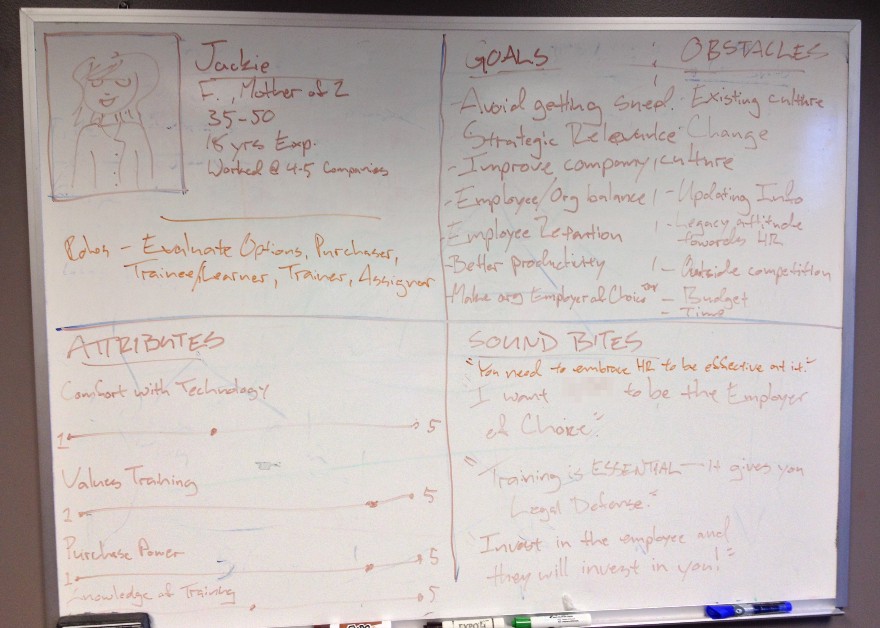 Jackie
F., Mother of 2
35-50
18 yrs Exp.
Worked @ 4-5 Companies
Roles - Evaluate Options, Purchaser,
Trainee/Learner, Trainer, Assignor
GOALS
- Avoid getting sued!
Strategic Relevance
- Improve company culture
- Employee/Org balance
- Employee Retention
- Better productivity
- Make org Employer of Choice
OBSTACLES
- Existing culture
Change
- Updating Info
- Legacy attitude
towards HR
- Outside competition
- Budget
- Time
ATTRIBUTES
Comfort with Technology
1 5
Values Training
1 5
Purchase Power
1 5
Knowledge of Training
5
SOUND BITES
"You need to embrace HR to be effective at it."
I want to be the Employer
of Choice."
"Training is ESSENTIAL - It gives you
Legal Defense."
Invest in the employee and
they will invest in you!"
EXPO